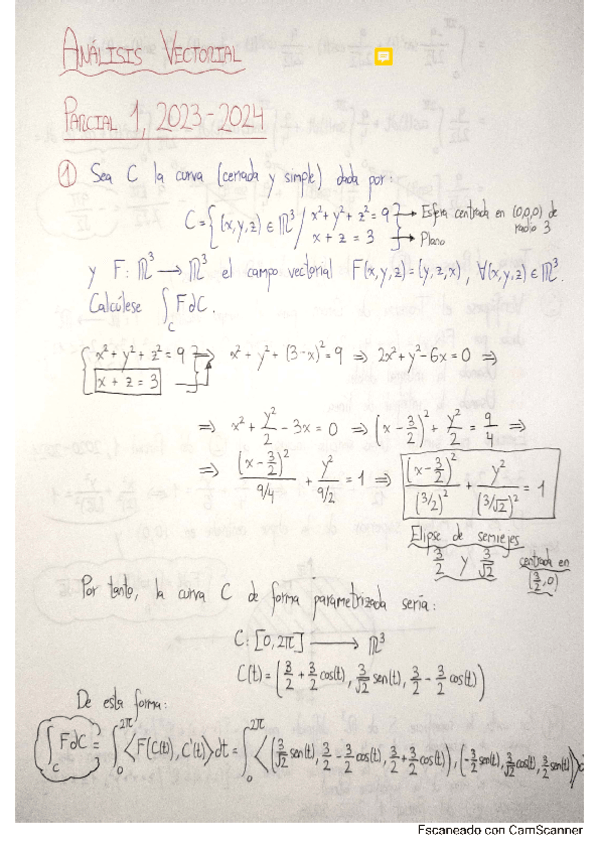 ANÁLISIS VECTORIAL
PARCIAL 1, 2023-2024
① Sea C la curva (cerrada y simple) dada por:
C = {(x,y,z) ∈ ℝ³ / x²+y²+z² = 9 → Esfera centrada en (0,0,0) de radio 3
x + z = 3 → Plano
y F: ℝ³ → ℝ³ el campo vectorial F(x,y,z) = (y,z,x), ∀(x,y,z) ∈ ℝ³.
Calcúlese ∫_C F dC.
{x²+y²+z² = 9 ⇒ x²+y²+(3-x)² = 9 ⇒ 2x²+y²-6x = 0 ⇒
x + z = 3
⇒ x² + y²/2 - 3x = 0 ⇒ (x - 3/2)² + y²/2 = 9/4 ⇒
⇒ (x - 3/2)²/(9/4) + y²/(9/2) = 1 ⇒ (x - 3/2)²/(3/2)² + y²/(3/√2)² = 1
Elipse de semiejes
3/2 y 3/√2 centrada en (3/2, 0)
Por tanto, la curva C de forma parametrizada sería:
C: [0, 2π] → ℝ³
C(t) = (3/2 + 3/2 cos(t), 3/√2 sen(t), 3/2 - 3/2 cos(t))
De esta forma:
∫_C F dC = ∫_0^{2π} <F(C(t)), C'(t)> dt = ∫_0^{2π} <(3/√2 sen(t), 3/2 - 3/2 cos(t), 3/2 + 3/2 cos(t)), (-3/2 sen(t), 3/√2 cos(t), 3/2 sen(t))>
Escaneado con CamScanner